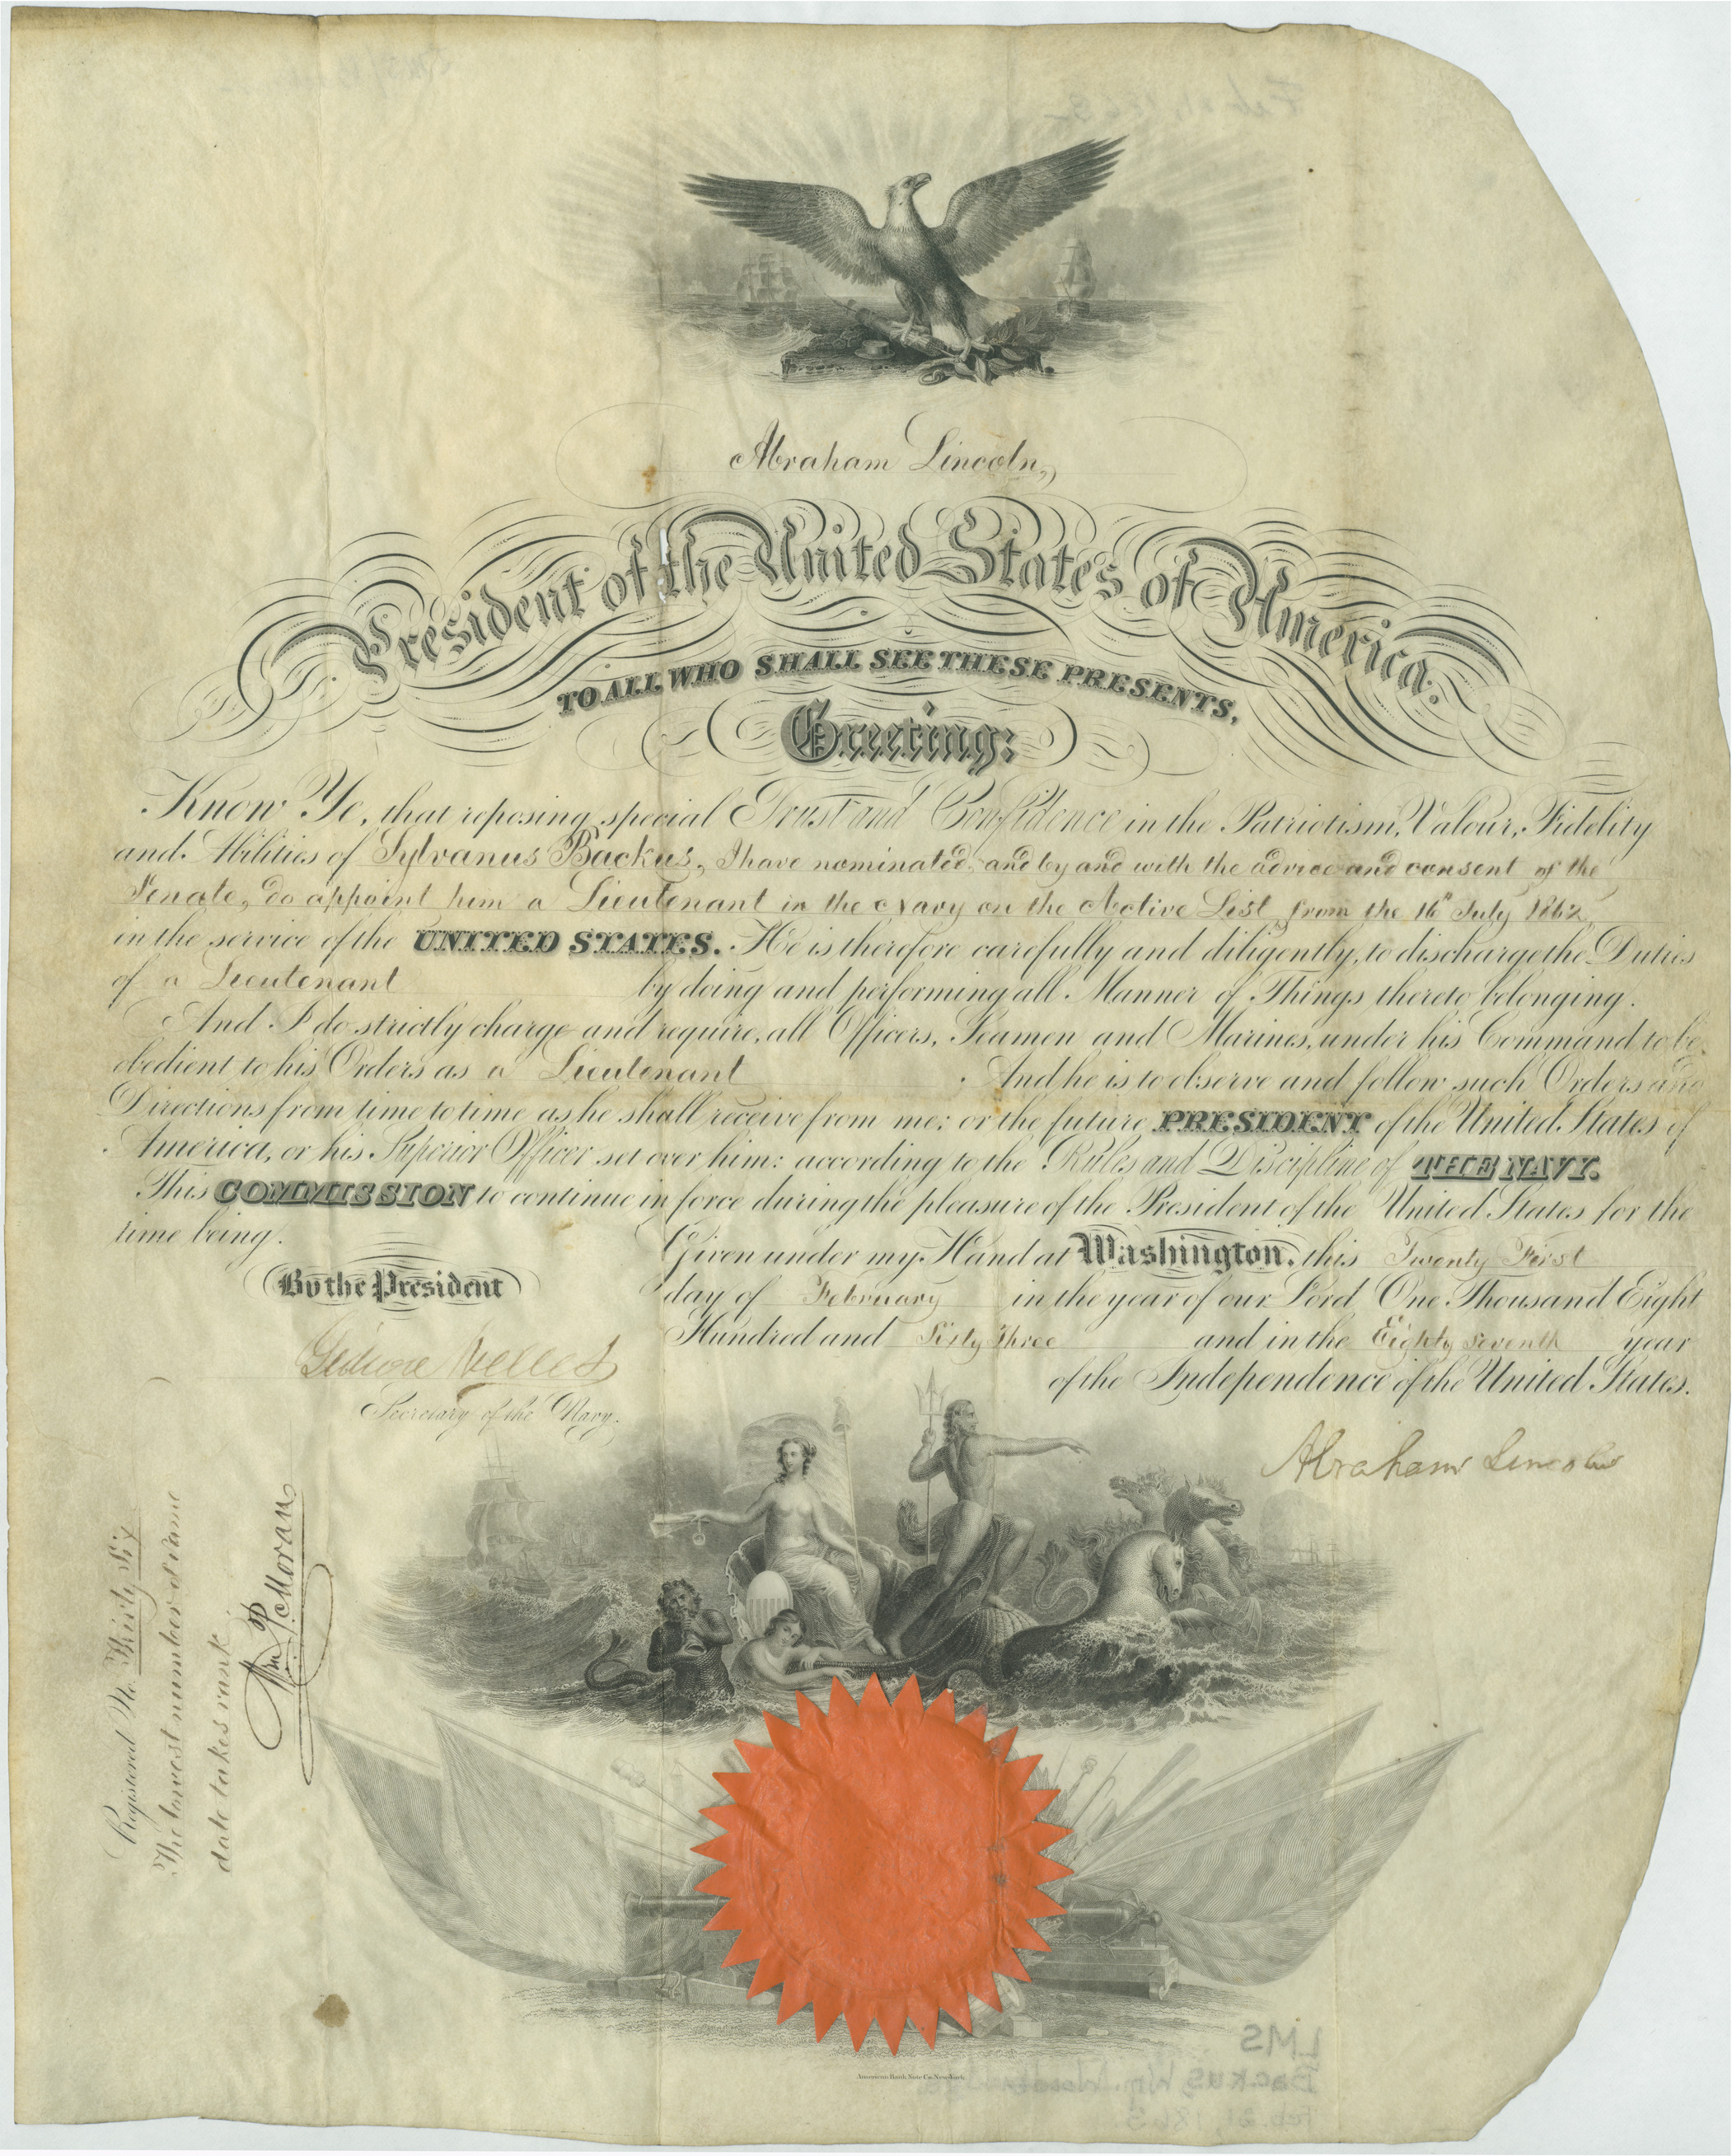 Abraham Lincoln,
President of the United States of America.
TO ALL WHO SHALL SEE THESE PRESENTS,
Greeting:
Know Ye, that reposing special Trust and Confidence in the Patriotism, Valour, Fidelity
and Abilities of Sylvanus Backus, I have nominated, and by and with the advice and consent of the
Senate, do appoint him a Lieutenant in the Navy on the Active List, from the 16th July 1862,
in the service of the UNITED STATES. He is therefore carefully and diligently, to discharge the Duties
of a Lieutenant by doing and performing all Manner of Things thereto belonging.
And I do strictly charge and require, all Officers, Seamen and Marines, under his Command to be
obedient to his Orders as a Lieutenant. And he is to observe and follow such Orders and
Directions from time to time as he shall receive from me; or the future PRESIDENT of the United States of
America, or his Superior Officer set over him: according to the Rules and Discipline of THE NAVY.
This COMMISSION to continue in force during the pleasure of the President of the United States for the
time being.
Given under my Hand at Washington, this Twenty First
day of February in the year of our Lord One Thousand Eight
Hundred and Sixty Three and in the Eighty Seventh year
of the Independence of the United States.
By the President
Gideon Welles
Secretary of the Navy.
Abraham Lincoln
Registered No. Thirty Six
The lowest number of same
date takes rank
Wm P. Moran
American Bank Note Co. New-York.
LMS
Backus, Wm.
Feb. 21, 1863